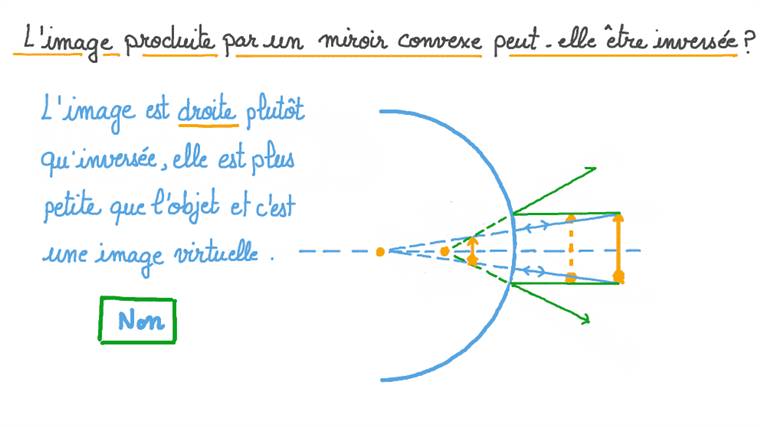 L'image produite par un miroir convexe peut-elle être inversée ?
L'image est droite plutôt
qu'inversée, elle est plus
petite que l'objet et c'est
une image virtuelle.
Non